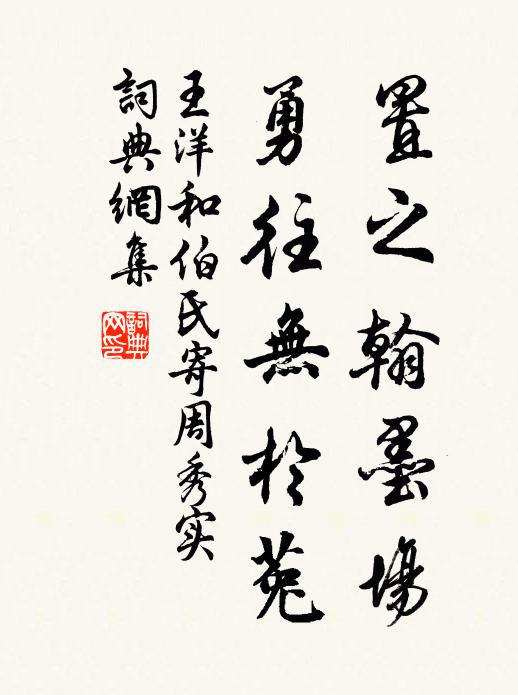 置之翰墨場
勇往無於菟
王洋和伯氏寄周秀实
詞典網集
詞典網印